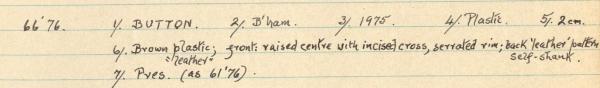 66'76. 1/. BUTTON. 2/. B'ham. 3/. 1975. 4/. Plastic. 5/. 2 cm.
6/. Brown plastic; front: raised centre with incised cross, serrated rim; back 'leather' pattern
"leather" self-shank.
7/. Pres. (as 61'76).